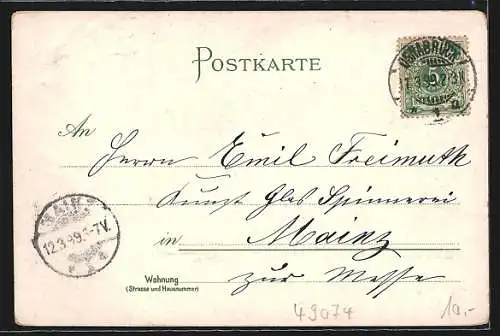 POSTKARTE
OSNABRÜCK
An
Herrn Emil Freimuth
Kunst Glas Spinnerei
in Mainz
MAINZ
12.3.99. 6-7V.
Wohnung
(Strasse und Hausnummer)
zur Messe
49074
10,-